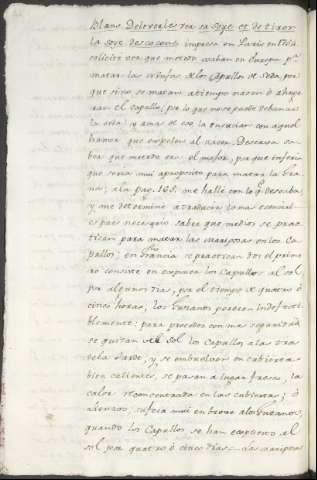 blans Delevorles rea sa Soye et de tiror
la soye des cocons impresa en Paris en
solicito vea que metodo usaban en Europa pª
matar las crisalas de los Capullos de Seda, por
que sino se matan atiempo nacen ó ahuje
ran el capullo, por lo que no se puede debanar
la seda, y ama de eso la ensucian con aquel
humor que expelen al nacer. Deseava sa
ber que metodo era el mejor, por que inferia
que seria mui aproposito para matar la Gra
na; ala pag. 165. me halle con lo q. deseaba,
y me determine atraducir lo mas esencial
pues necesario saber que medios se prac
tican para matar las mariposas en los Ca
pullos; en Francia se practican dos el prime
ro consiste en exponer los Capullos al sol
por algunos dias, por el tiempo de quatro ó
cinco horas, los Gusanos perecen indefecti
blemente: para proceder con mas seguridad
se quitan del sol los Capullos a las tres
dela tarde, y se embuelven en cubiertas
bien calientes, se pasan a lugar fresco, la
calor reconcentrada en las cubiertas;
sufoca mui en breve alos Gusanos,
quando los Capullos se han expuesto al
sol por quatro ó cinco dias las mariposas